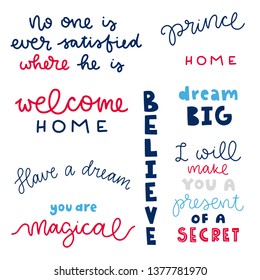 no one is
ever satisfied
where he is
prince
HOME
welcome
HOME
dream
BIG
BELIEVE
Have a dream
I will
make
YOU A
present
OF A
SECRET
you are
magical
shutterstock.com · 1377781970